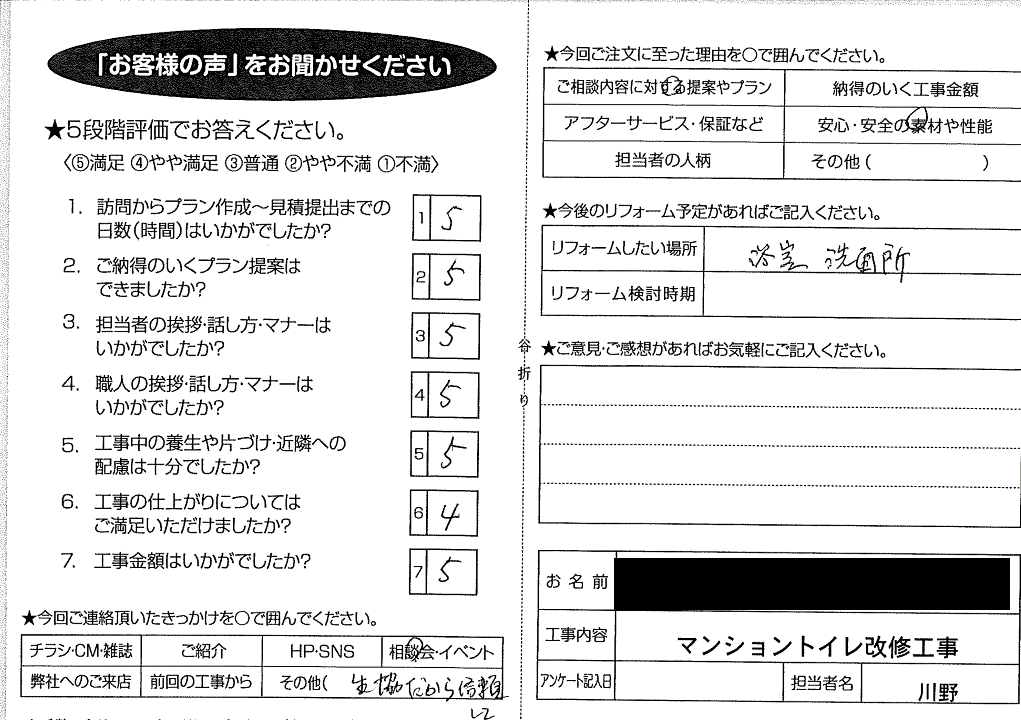 「お客様の声」をお聞かせください
★5段階評価でお答えください。
〈⑤満足 ④やや満足 ③普通 ②やや不満 ①不満〉
1. 訪問からプラン作成～見積提出までの
日数(時間)はいかがでしたか?
1 5
2. ご納得のいくプラン提案は
できましたか?
2 5
3. 担当者の挨拶・話し方・マナーは
いかがでしたか?
3 5
4. 職人の挨拶・話し方・マナーは
いかがでしたか?
4 5
5. 工事中の養生や片づけ・近隣への
配慮は十分でしたか?
5 5
6. 工事の仕上がりについては
ご満足いただけましたか?
6 4
7. 工事金額はいかがでしたか?
7 5
★今回ご連絡頂いたきっかけを○で囲んでください。
チラシ・CM・雑誌 ご紹介 HP・SNS 相談会・イベント
弊社へのご来店 前回の工事から その他( 生協だから信頼
して
谷折り
★今回ご注文に至った理由を○で囲んでください。
ご相談内容に対する提案やプラン 納得のいく工事金額
アフターサービス・保証など 安心・安全の素材や性能
担当者の人柄 その他( )
★今後のリフォーム予定があればご記入ください。
リフォームしたい場所 浴室 洗面所
リフォーム検討時期
★ご意見・ご感想があればお気軽にご記入ください。
お名前
工事内容 マンショントイレ改修工事
アンケート記入日 担当者名 川野